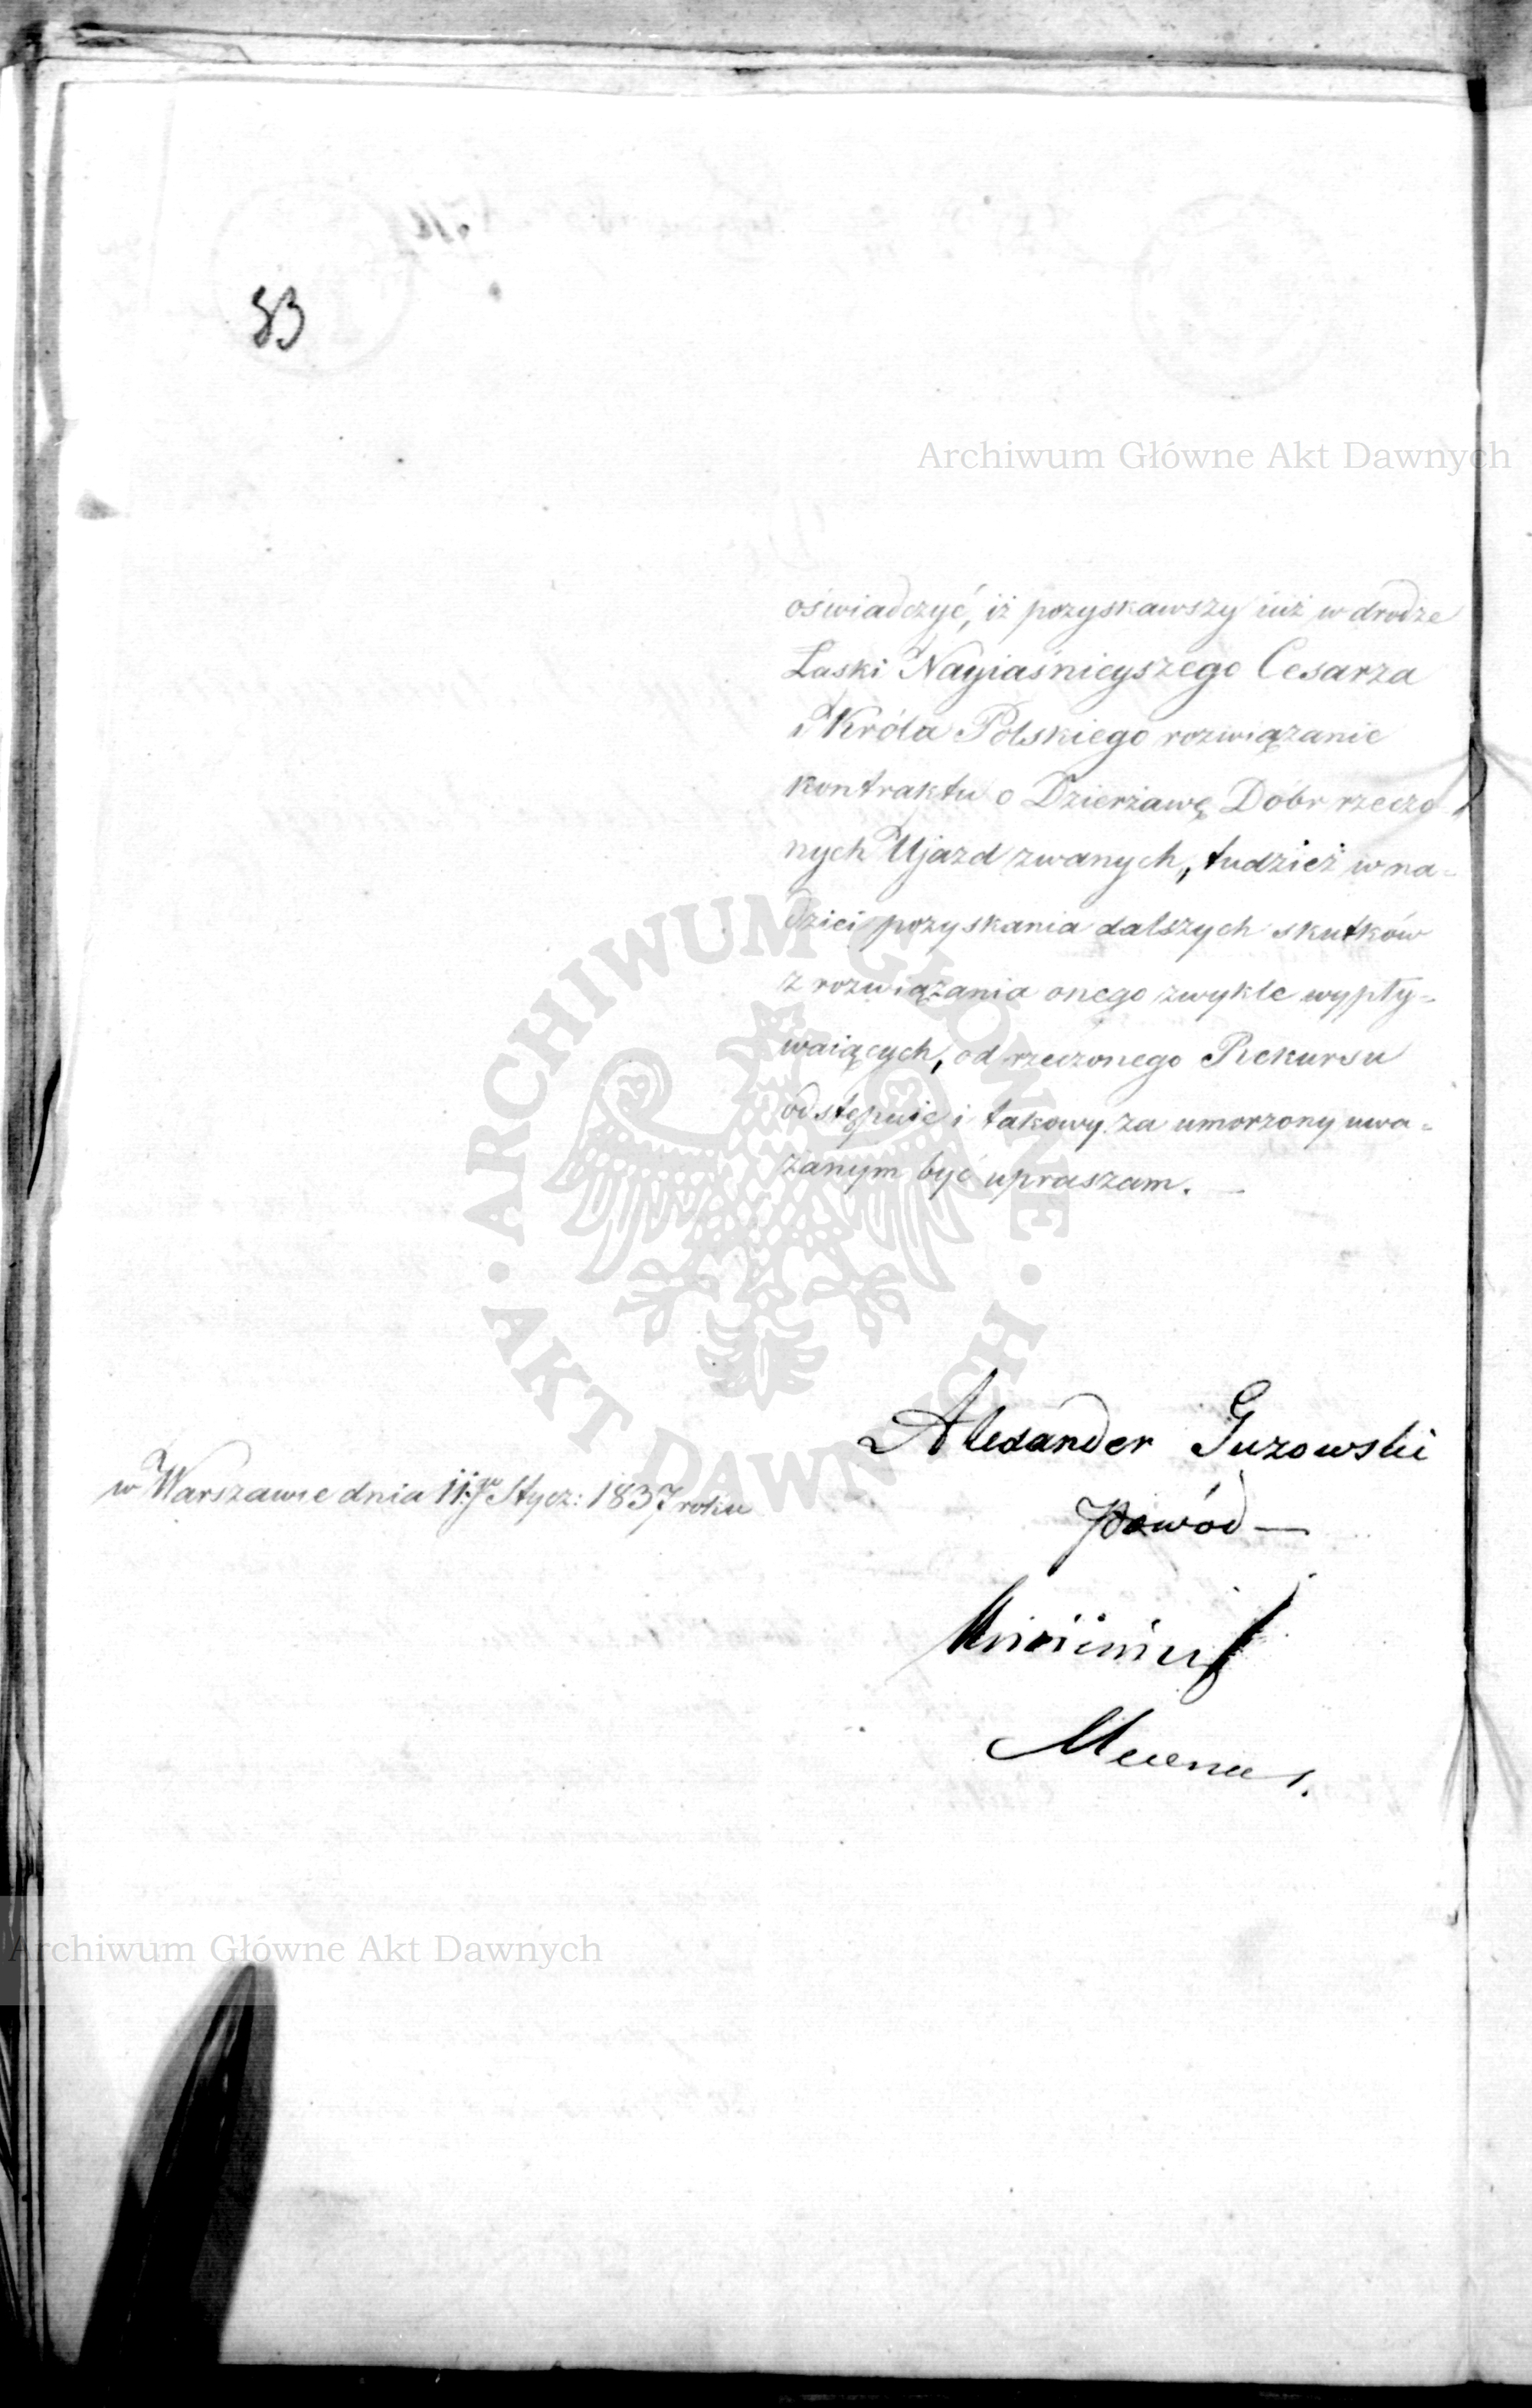 33
Archiwum Główne Akt Dawnych
oświadczyć, iż pozyskawszy iuż w drodze
Łaski Nayiaśnieyszego Cesarza
i Króla Polskiego rozwiązanie
kontraktu o Dzierżawę Dóbr rzeczo
nych Ujazd zwanych, tudzież w na=
dziei pozyskania dalszych skutków
z rozwiązania onego zwykle wypły=
waiących, od rzeczonego Rekursu
odstępuie i takowy za umorzony uwa=
żanym być upraszam.
ARCHIWUM GŁÓWNE AKT DAWNYCH
Alexander Guzowski
w Warszawie dnia 11go Stycz: 1837 roku
Powód
Mecenas.
Archiwum Główne Akt Dawnych